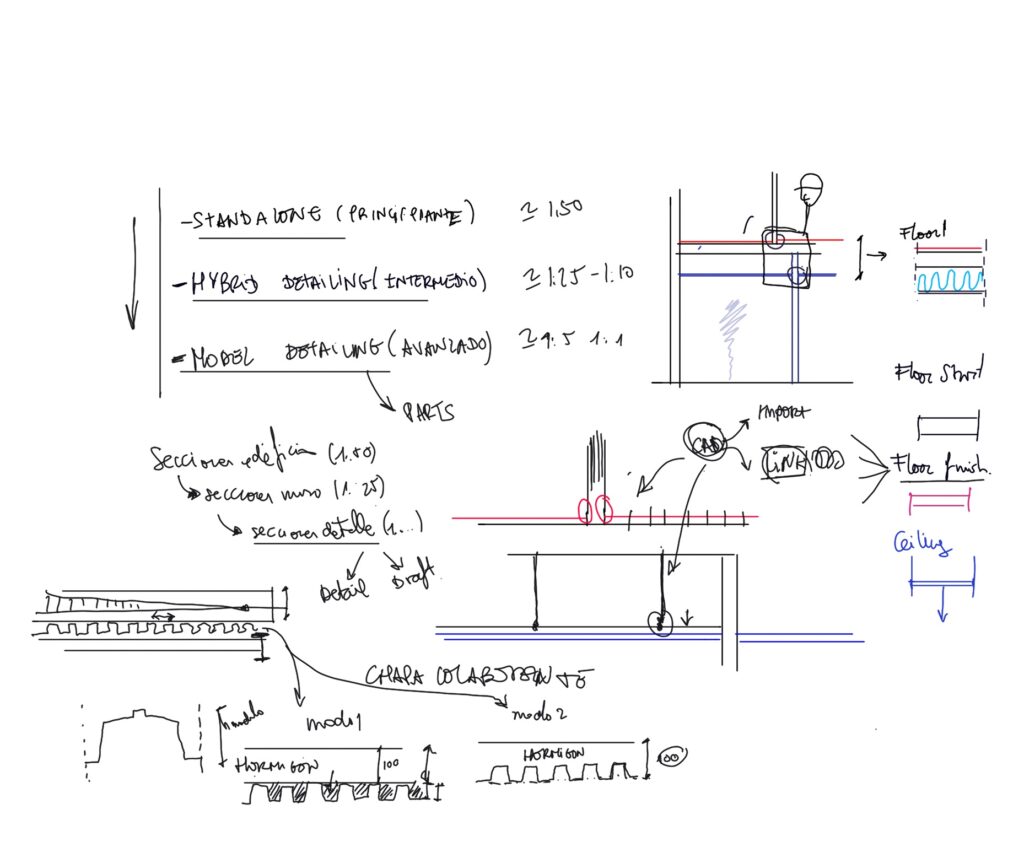 - STANDALONE (PRINCIPIANTE) ≃ 1:50
- HYBRID DETAILING (INTERMEDIO) ≃ 1:25 - 1:10
- MODEL DETAILING (AVANZADO) ≃ 1:5 1:1
PARTS
Secciones edificio (1:50)
secciones muro (1:25)
secciones detalle (1:...)
Detail
Draft.
CAD
IMPORT
LINK
Floor 1
Floor Struct
Floor finish.
Ceiling
CHAPA COLABORANTE
modo 1
modo 2
HORMIGON
100
HORMIGON
100